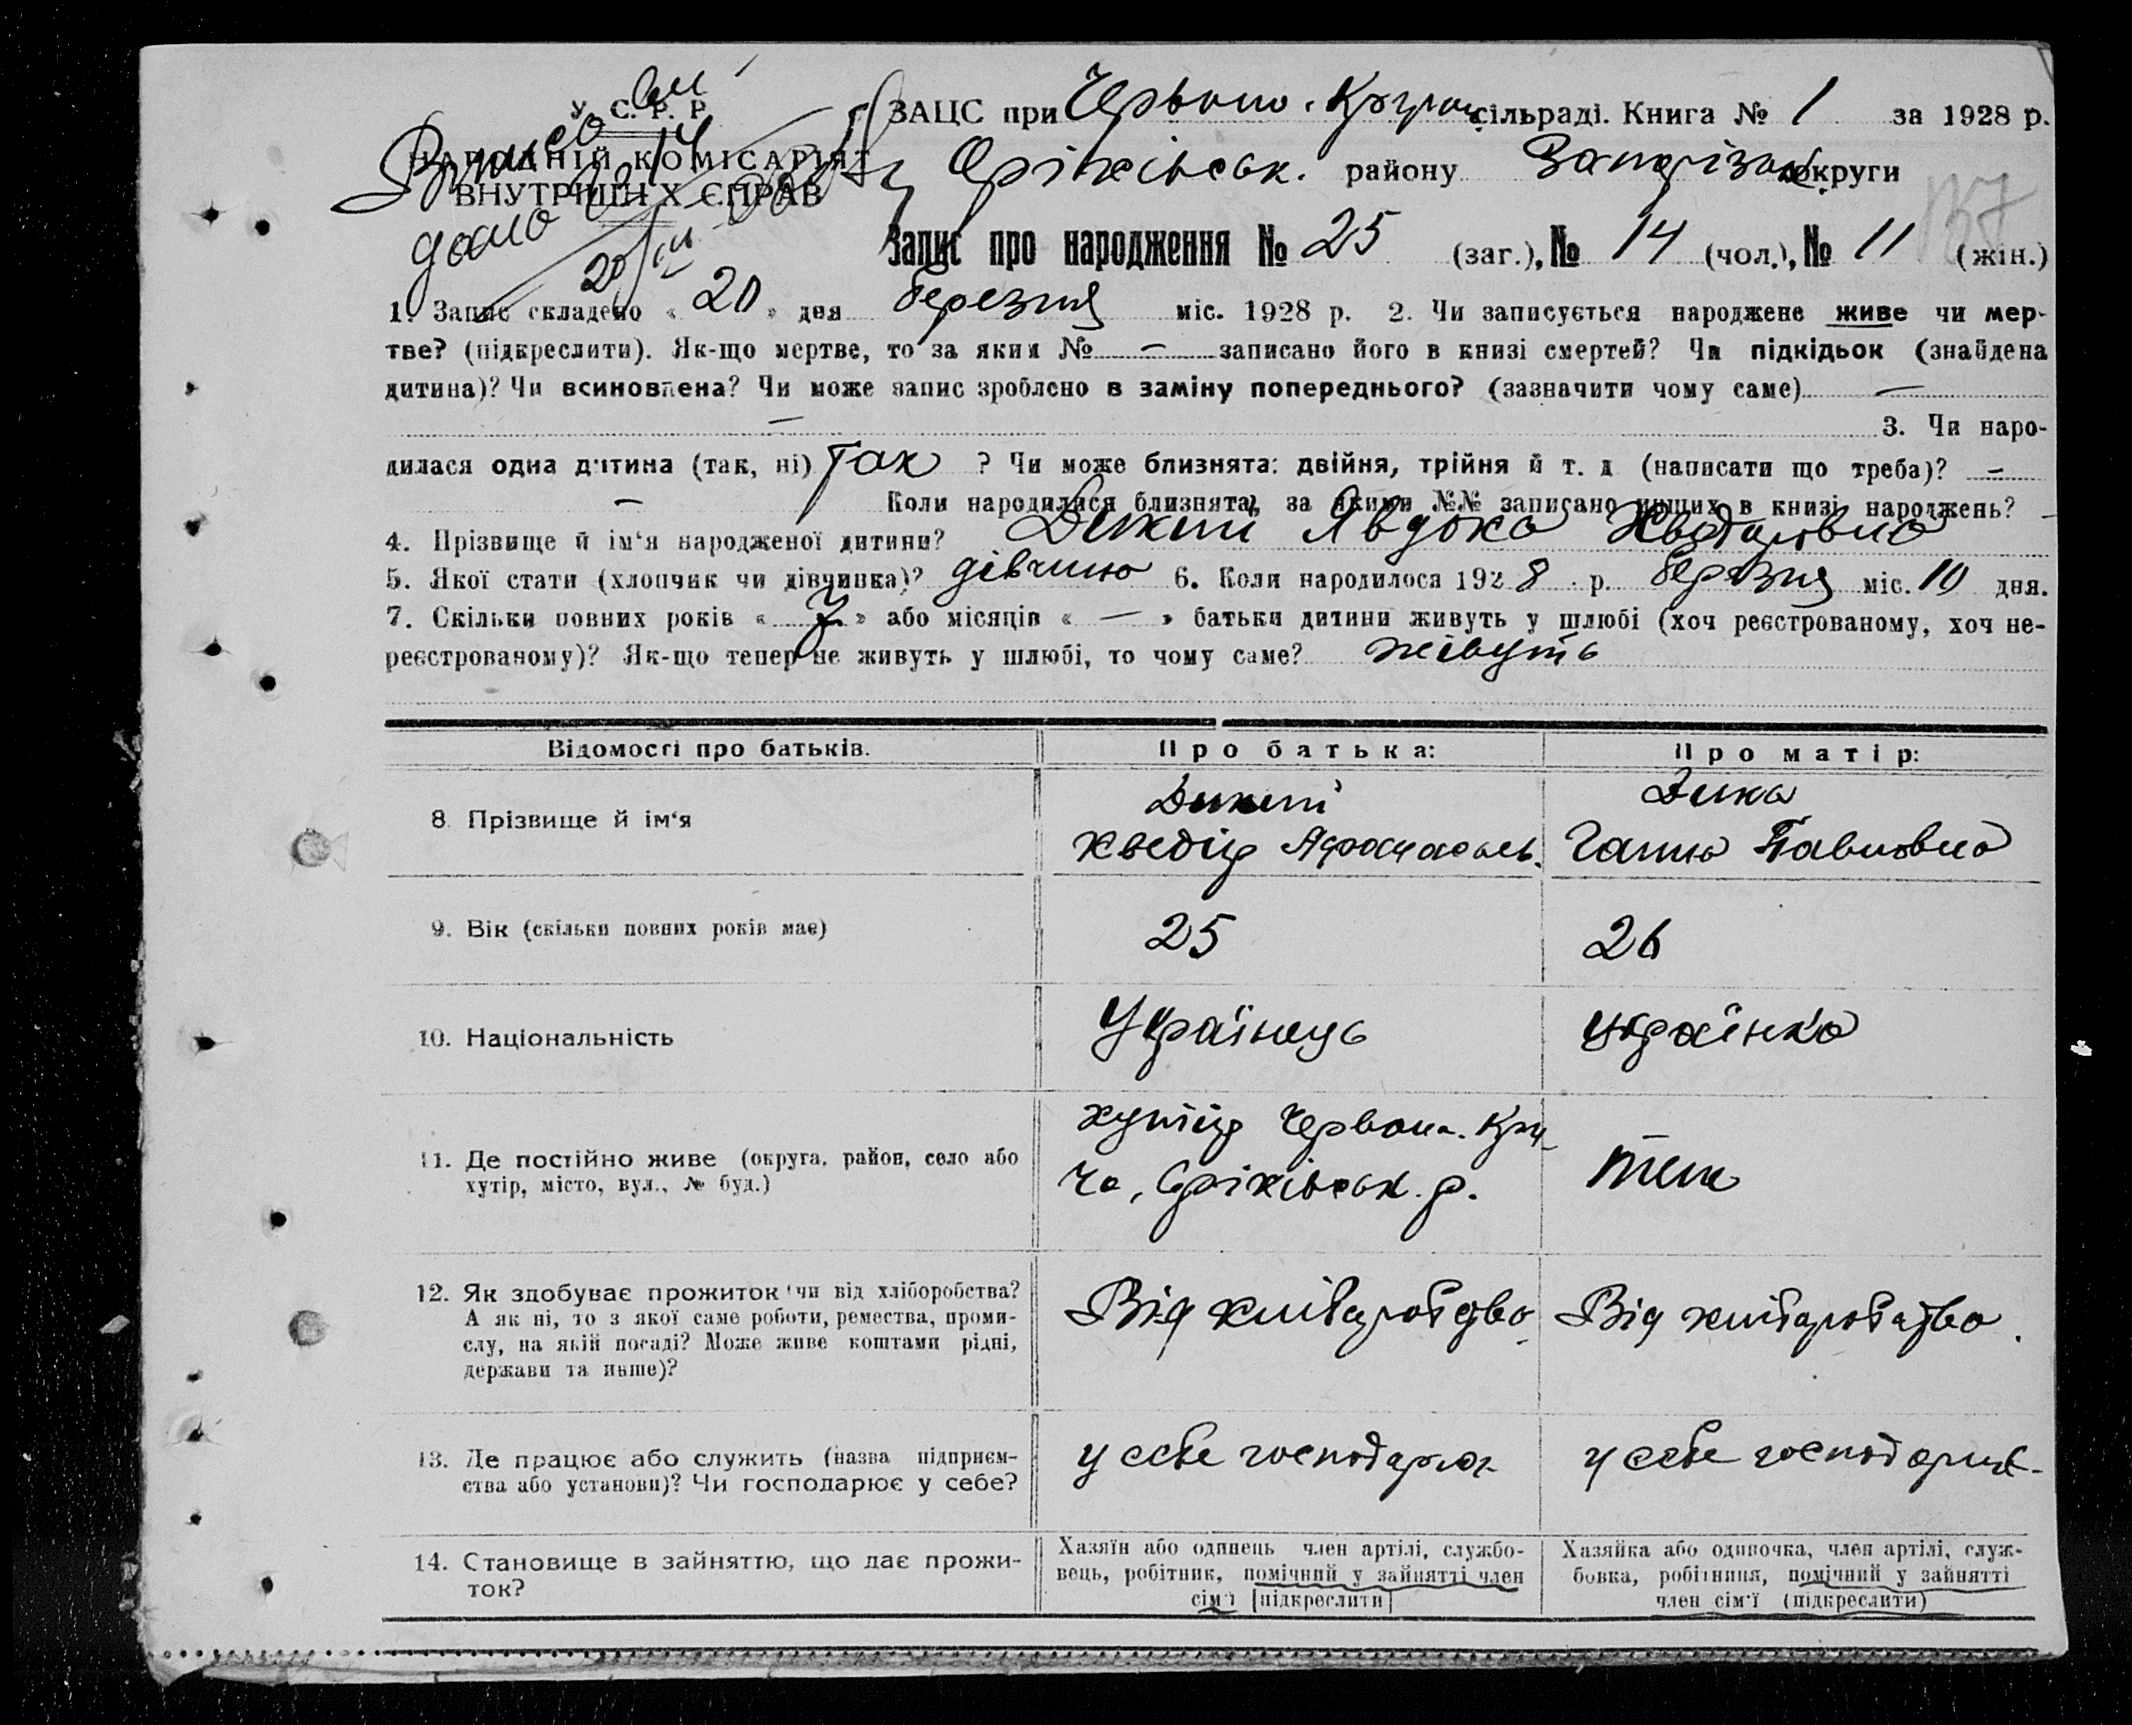 У. С. Р. Р.
НАРОДНІЙ КОМІСАРІЯТ
ВНУТРІШНІХ СПРАВ
ЗАЦС при Червоно. Кручан. сільраді. Книга № 1 за 1928 р.
Оріхівськ. району Запорізьк. округи
Запис про народження № 25 (заг.), № 14 (чол.), № 11 (жін.)
1. Запис складено « 20 » дня березня міс. 1928 р. 2. Чи записується народжене живе чи мер-
тве? (підкреслити). Як-що мертве, то за яким № — записано його в книзі смертей? Чи підкідьок (знайдена
дитина)? Чи всиновлена? Чи може запис зроблено в заміну попереднього? (зазначити чому саме) —
— 3. Чи наро-
дилася одна дитина (так, ні) так ? Чи може близнята: двійня, трійня й т. д (написати що треба)? —
— Коли народилися близнята, за якими №№ записано инших в книзі народжень? —
4. Прізвище й ім'я народженої дитини? Дикий Явдоха Хведоровна
5. Якої стати (хлопчик чи дівчинка)? дівчина 6. Коли народилося 1928 р. березня міс. 10 дня.
7. Скільки повних років « 7 » або місяців « — » батьки дитини живуть у шлюбі (хоч реєстрованому, хоч не-
реєстрованому)? Як-що тепер не живуть у шлюбі, то чому саме? живуть
Відомості про батьків. Про батька: Про матір:
8. Прізвище й ім'я Дикий Дика
Хведір Афанасьев. Ганна Павловна
9. Вік (скільки повних років має) 25 26
10. Національність Українець Українка
11. Де постійно живе (округа, район, село або хутір Червона. Кру-
хутір, місто, вул., № буд.) ча, Оріхівськ. р. теж
12. Як здобуває прожиток чи від хліборобства? Від хліборобства Від хліборобства.
А як ні, то з якої саме роботи, ремества, проми-
слу, на якій посаді? Може живе коштами рідні,
держави та инше)?
13. Де працює або служить (назва підприєм- у себе господарює у себе господарює
ства або установи)? Чи господарює у себе?
14. Становище в зайняттю, що дає прожи- Хазяїн або одинець член артілі, службо- Хазяйка або одиночка, член артілі, служ-
ток? вець, робітник, помічний у зайнятті член бовка, робітниця, помічний у зайнятті
сім'ї [підкреслити] член сім'ї (підкреслити)